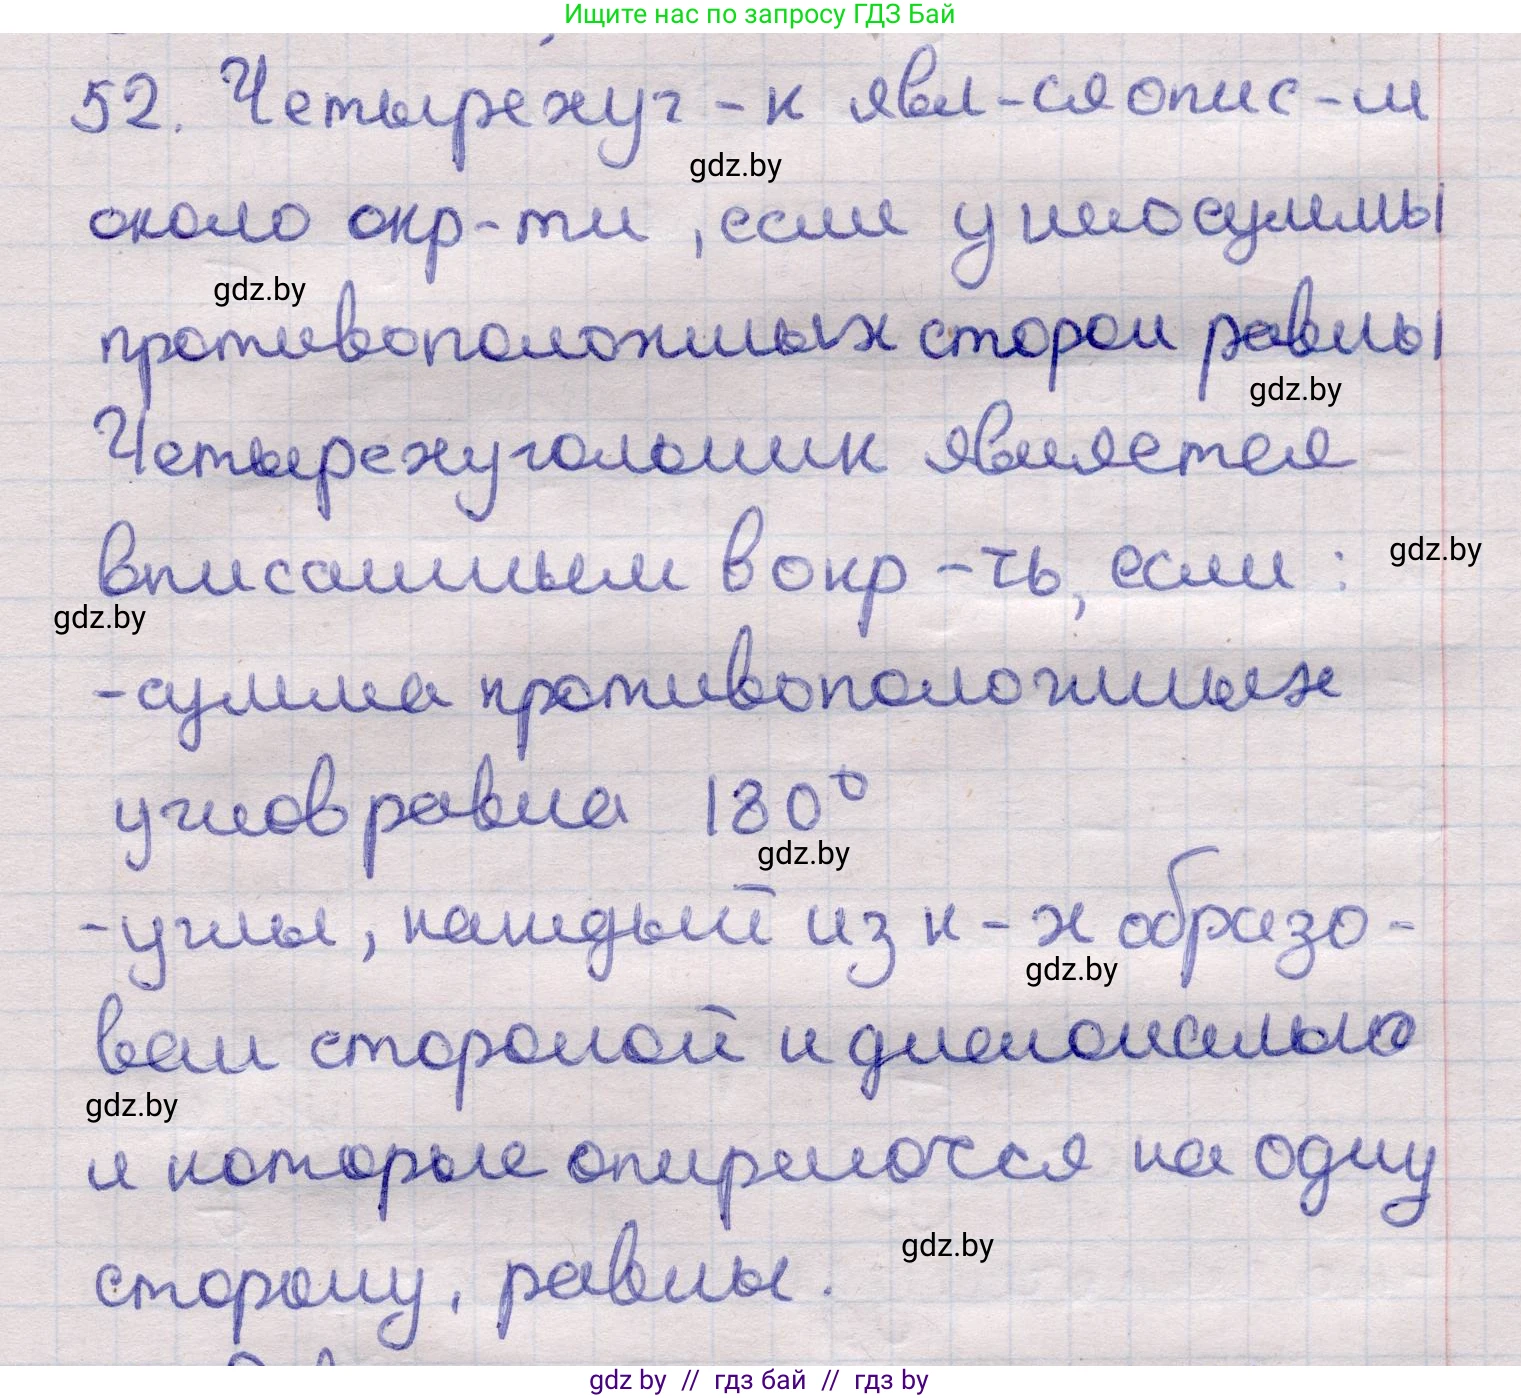 Ищите нас по запросу ГДЗ Бай
52. Четырехуг-к явл-ся опис-м
gdz.by
около окр-ти, если у него суммы
gdz.by
противоположных сторон равны
gdz.by
Четырехугольник является
gdz.by
вписанным в окр-ть, если:
gdz.by
-сумма противоположных
углов равна 180°
gdz.by
-углы, каждый из к-х образо-
gdz.by
ван стороной и диагональю
gdz.by
и которые опираются на одну
gdz.by
сторону, равны.
gdz.by // гдз бай // гдз by